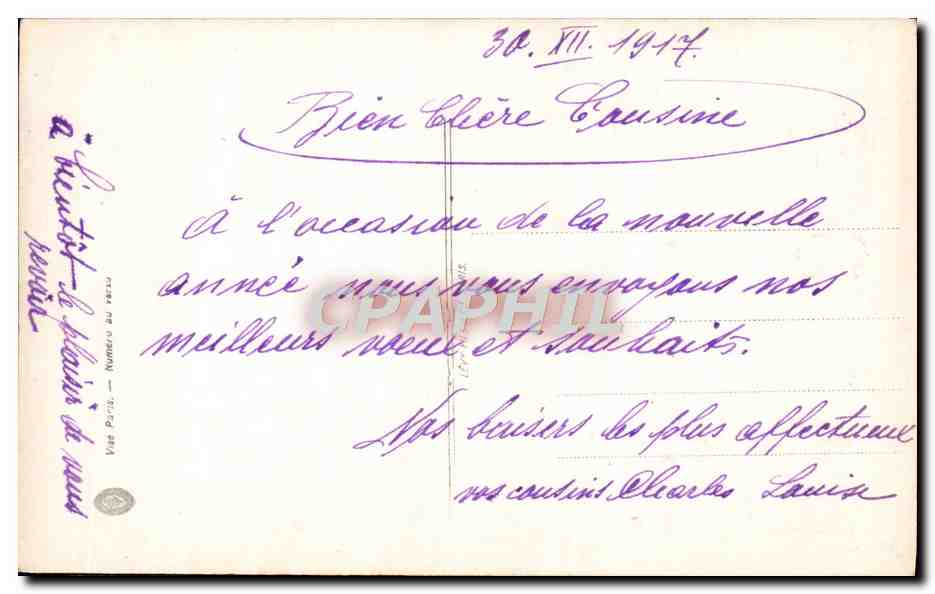 30. XII. 1917.
Bien Chère Cousine
À l'occasion de la nouvelle
année nous vous envoyons nos
meilleurs voeux et souhaits.
Nos baisers les plus affectueux
vos cousins Charles Louise
à bientôt le plaisir de vous
revoir
Visé Paris. — Numéro au verso
CPAPHIL